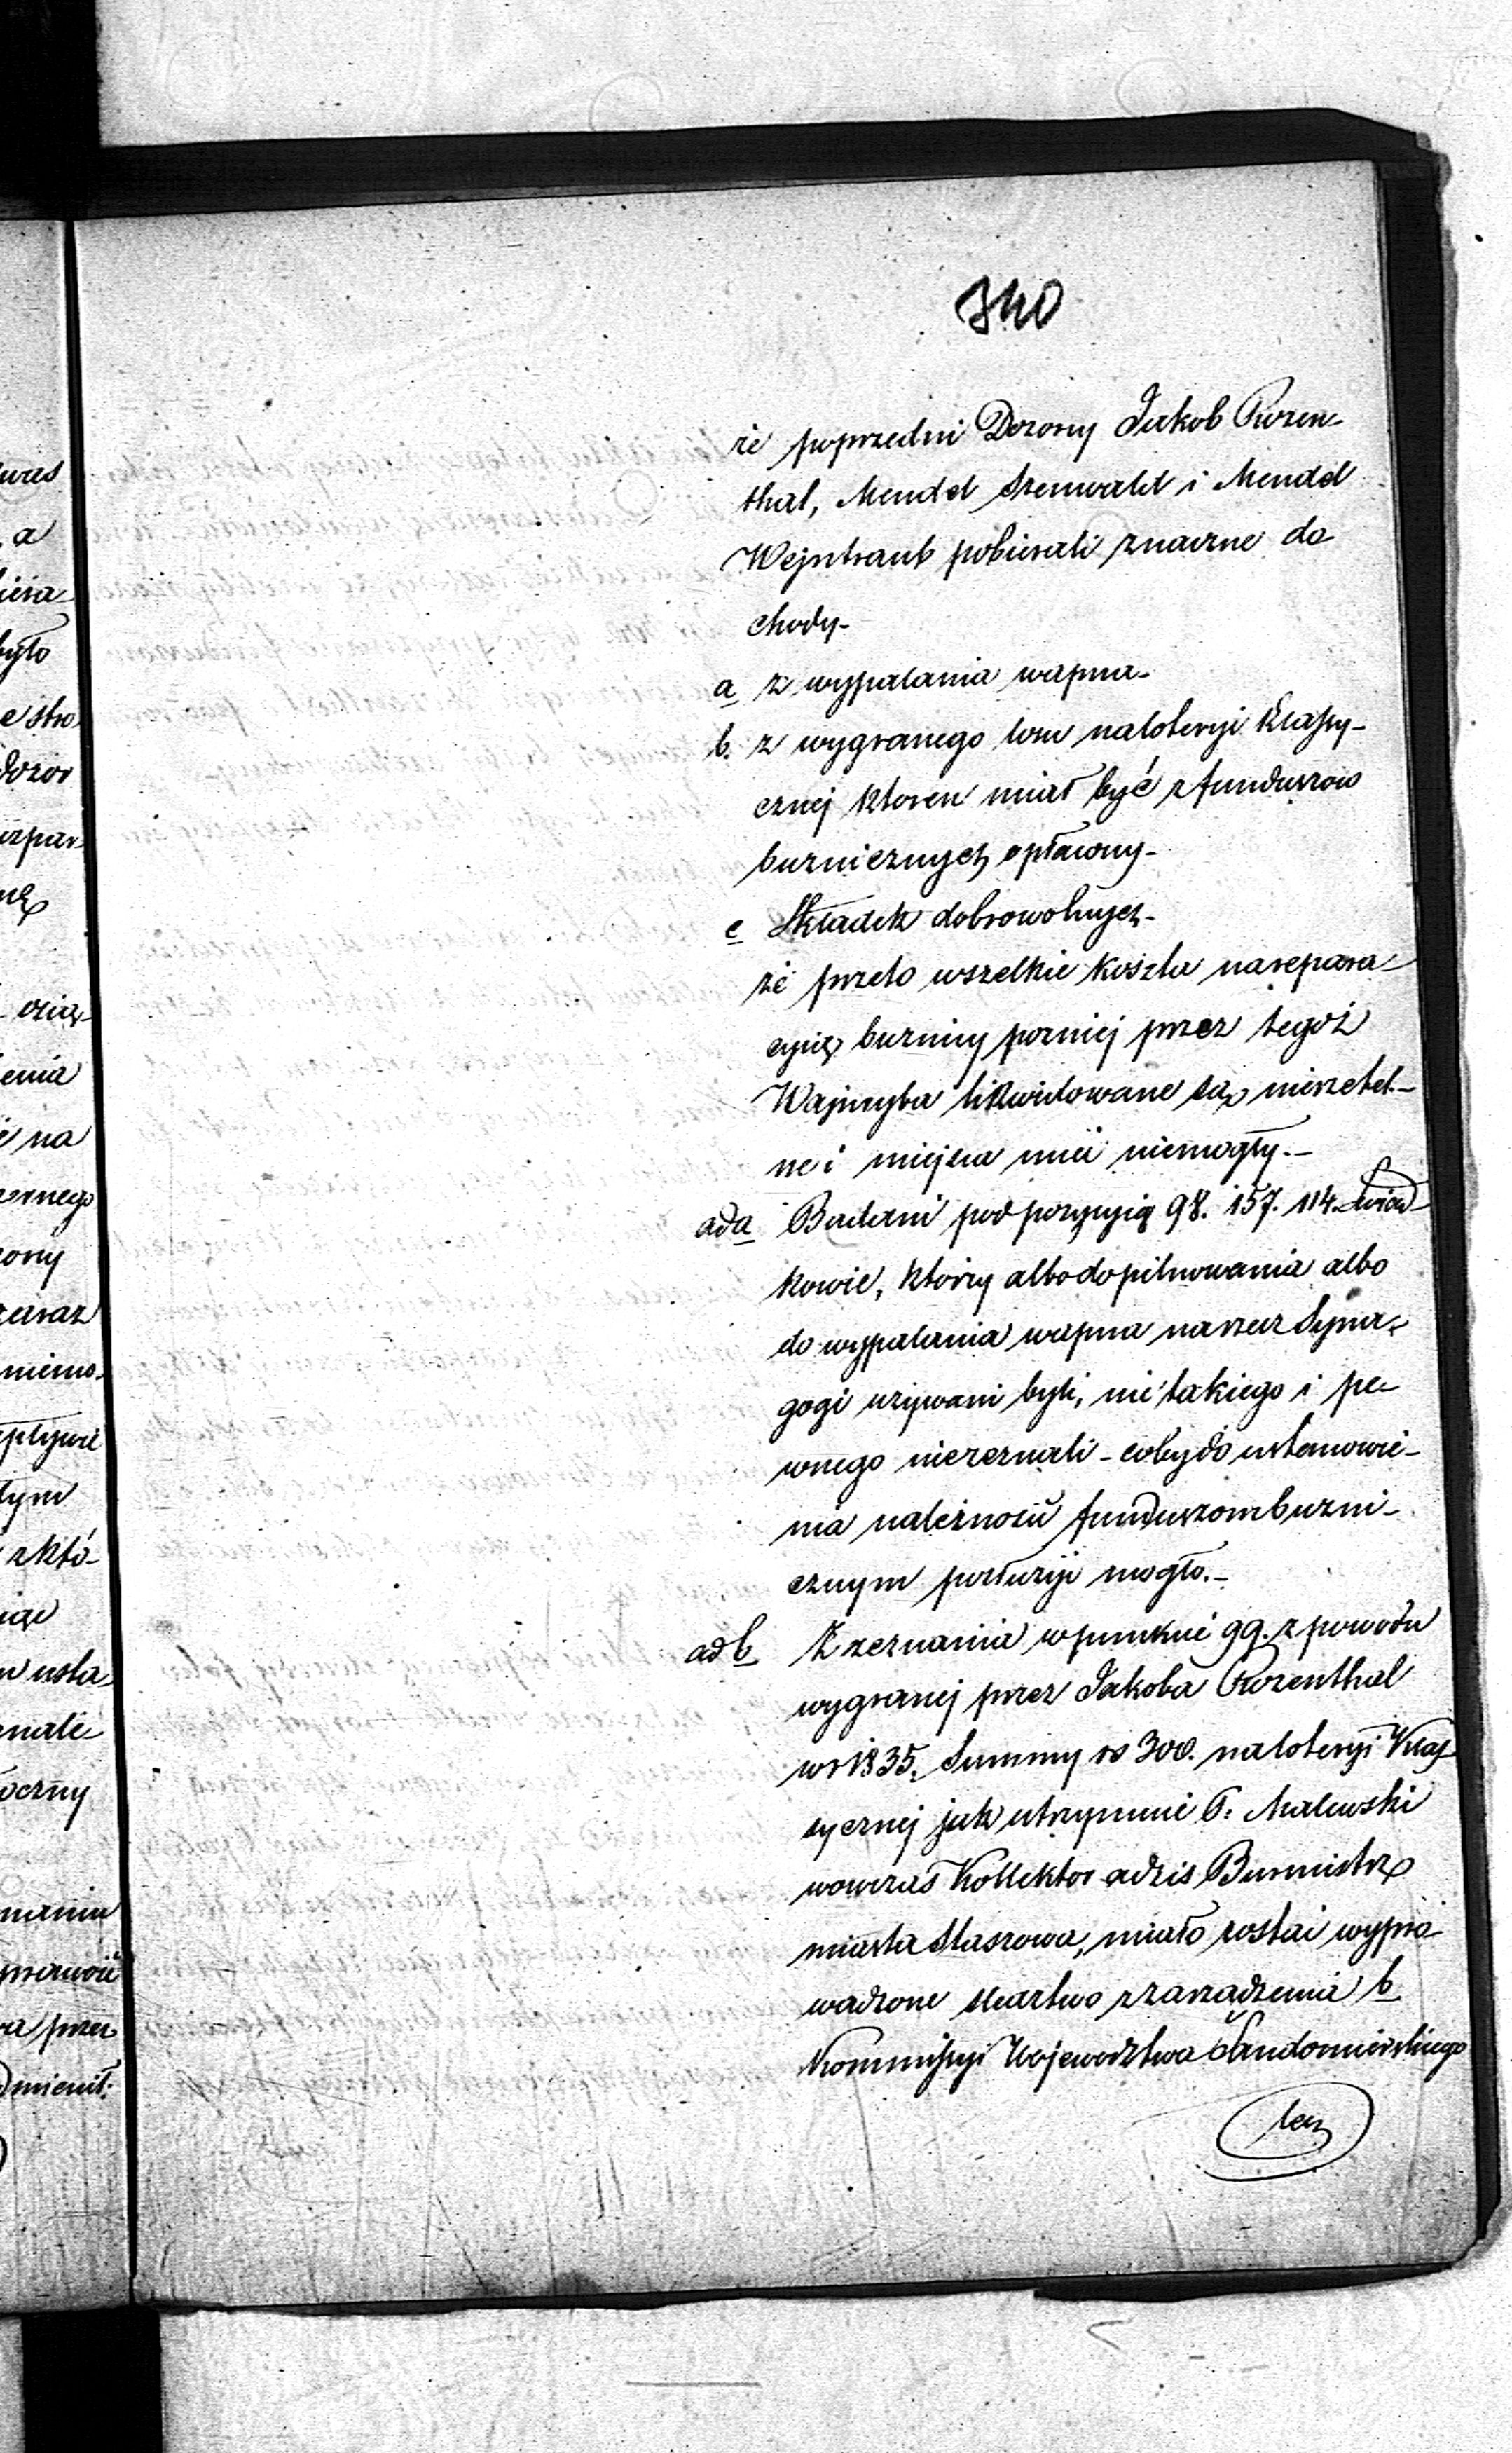 wres
a
biera
było
e stro
dozor
zpar
nę
ozią
enia
ć na
ornego
zony
zaraz
niemo.
pływie
tym
z któ-
iąc
n usta
nale-
oczny
maniu
prawoić
va przez
mienił:
340
że poprzedni Dozorcy Jakob Rozen-
thal, Mendel Szenwald i Mendel
Wejntraub pobierali znaczne do
chody-
a z wypalania wapna-
b. z wygranego losu naloteryi Klassy-
cznej ktoren miał być zfunduszow
buznicznych opłacony-
c Składek dobrowolnych-
że przeto wszelkie koszta narepara-
cyię buznicy pozniej przez tegoż
Wajncyba likwidowane są nierzetel-
ne i miejsca mieć niemogły.-
ada Badani pod pozycyią 98. 157. 114. Swiad
kowie, ktorzy albo dopilnowania albo
do wypalania wapna narzecz Syna-
gogi uzywani byli, nic takiego i pe-
wnego niezeznali - coby do ustanowie-
nia należności funduszom buzni-
cznym posłużyć mogło.-
adb Z zeznania wpunkcie 99. z powodu
wygranej przez Jakoba Rozenthal
wr 1835. Summy rs 300. naloteryi Klas
sycznej jak utrzymuie P. Malewski
wowczas Kollektor adzis Burmistrz
miasta Staszowa, miało zostać wypro
wadzone sledztwo zzarządzenia b
Kommissyi Wojewodztwa Sandomierskiego